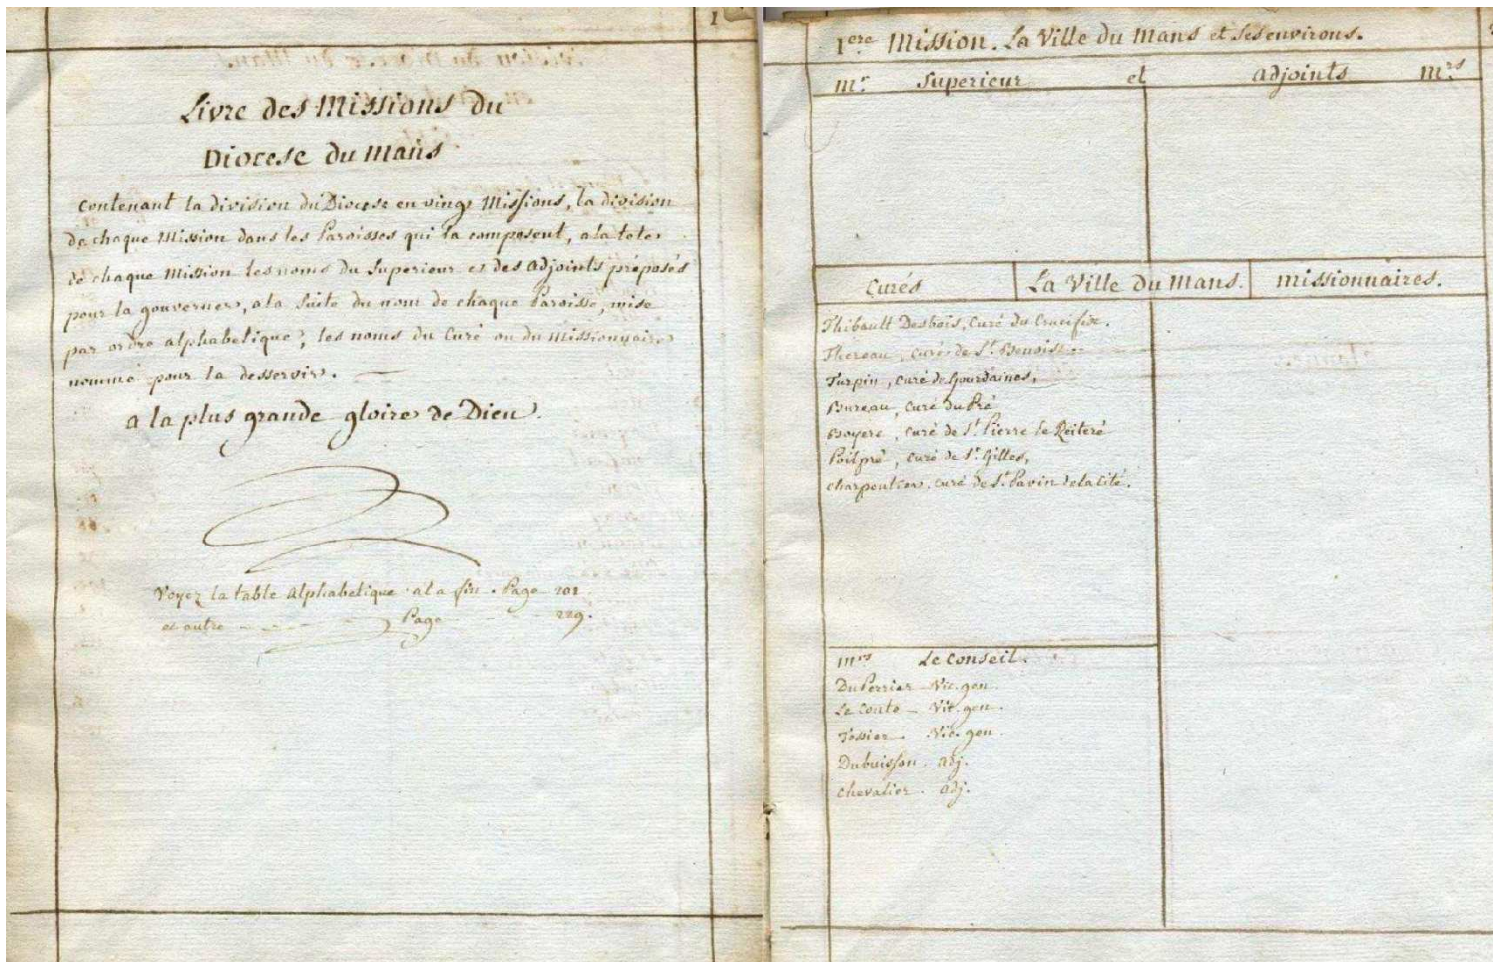 1
Livre des Missions du
Diocese du Mans
contenant la division du Diocese en vingt Missions, la division
de chaque Mission dans les Paroisses qui la composent, a la tete
de chaque Mission les noms du Superieur et des adjoints préposés
pour la gouverner, a la suite du nom de chaque Paroisse, mise
par ordre alphabetique, les noms du Curé ou du Missionnaire
nommé pour la desservir.
a la plus grande gloire de Dieu.
Voyez la table alphabetique a la fin. Page 201
et autre Page 229.
1ere Mission. La Ville du Mans et ses environs.
Mr. Superieur et adjoints Mrs
Curés La Ville du Mans. missionnaires.
Thibault Desbois, Curé du Crucifix.
Thereau, curé de St. Benoist
Turpin, curé de Gourdaines,
Bureau, curé du Pré
Boyere, curé de St. Pierre le Reiteré
Poilpré, curé de St. Gilles,
Charpentier, curé de St. Pavin de la Cité.
Mrs Le Conseil.
Du Perrier - Vic. gen.
Le Conte - Vic. gen.
Tessier. Vic. gen.
Dubuisson. adj.
Chevalier. adj.